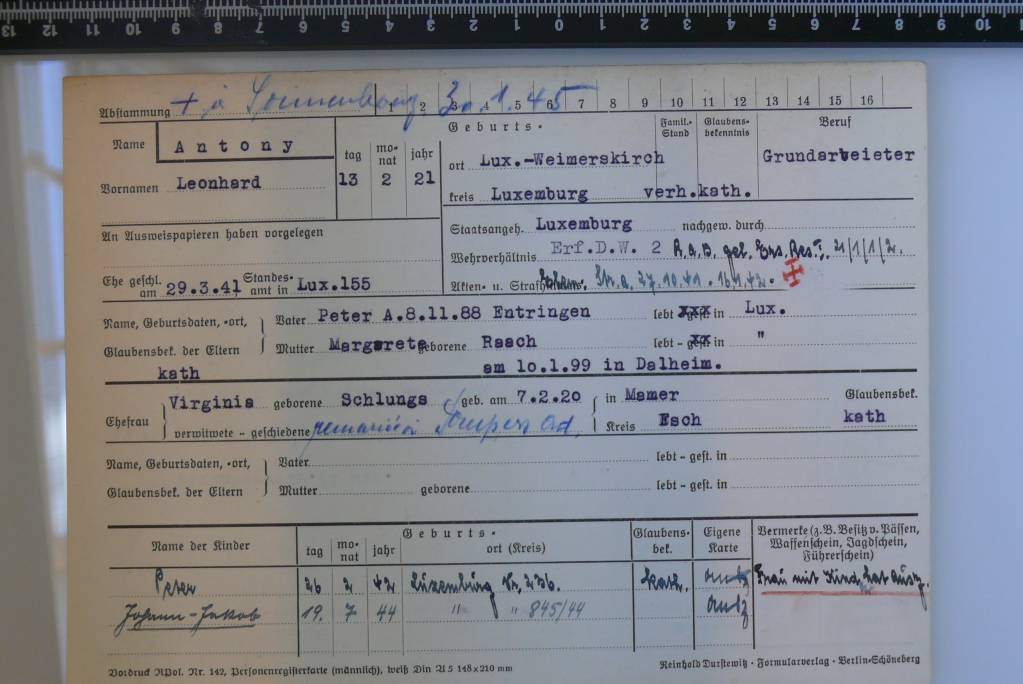 13 12 11 10 9 8 7 6 5 4 3 2 1 0 1 2 3 4 5 6 7 8 9 10
Abstammung + in Sonnenburg 3.1.45
1 2 3 4 5 6 7 8 9 10 11 12 13 14 15 16
Name Antony
tag monat jahr
Geburts-
Famil.-Stand
Glaubens-bekenntnis
Beruf
Vornamen Leonhard 13 2 21
ort Lux.-Weimerskirch
Grundarbeieter
kreis Luxemburg verh. kath.
An Ausweispapieren haben vorgelegen
Staatsangeh. Luxemburg nachgew. durch
Erf.D.W. 2 R.a.D. gel. Ers.Res.I. 21/1/1/2.
Wehrverhältnis
Ehe geschl. am 29.3.41 Standesamt in Lux.155
Akten- u. Strafh Str.a. 27.10.41. 16.1.42.
Name, Geburtsdaten, -ort, Glaubensbek. der Eltern
Vater Peter A.8.11.88 Entringen lebt xxx in Lux.
Mutter Margarete geborene Rasch lebt - xx in "
kath am 10.1.99 in Dalheim.
Ehefrau Virginia geborene Schlungs geb. am 7.2.20 in Mamer Glaubensbek.
verwitwete - geschiedene Kreis Esch kath
Name, Geburtsdaten, -ort, Glaubensbek. der Eltern
Vater lebt - gest. in
Mutter geborene lebt - gest. in
Name der Kinder
Geburts-
tag monat jahr ort (Kreis)
Glaubens-bek.
Eigene Karte
Vermerke (z.B. Besitz v. Pässen, Waffenschein, Jagdschein, Führerschein)
Peter 26 2 42 Luxemburg Nr. 236. kath. Frau mit Kind hat Ausw.
Johann-Jakob 19. 7 44 " " 845/44
Vordruck RPol. Nr. 142, Personenregisterkarte (männlich), weiß Din A 5 148x210 mm
Reinhold Durstewitz · Formularverlag · Berlin-Schöneberg